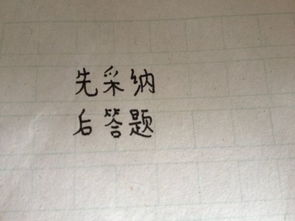 先采纳
后答题